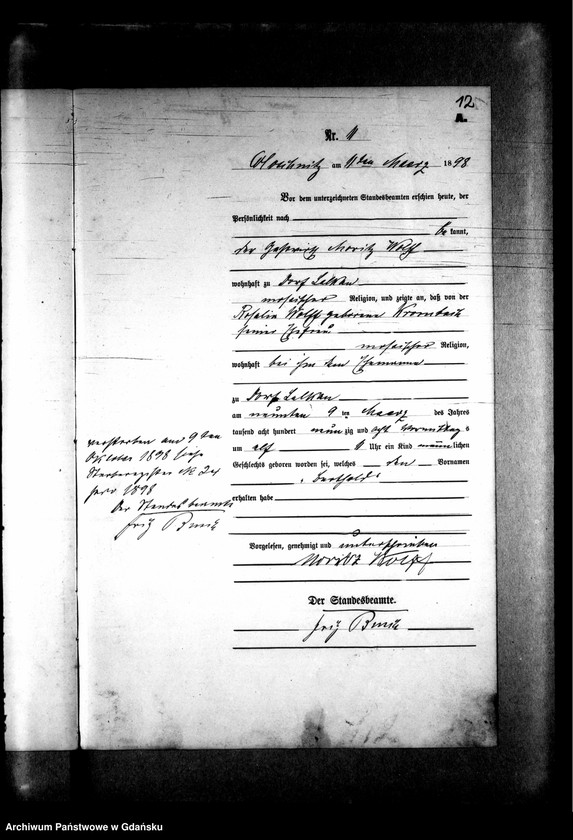 12
A.
Nr. 11
am 11ten Maerz 1898
Vor dem unterzeichneten Standesbeamten erschien heute, der
Persönlichkeit nach
be kannt,
der Gastwirth Moritz Wolff
wohnhaft zu Dorf Lalkau
mosaischer Religion, und zeigte an, daß von der
Rosalie Wolff geborene Krombach
seiner Ehefrau
mosaischer Religion,
wohnhaft bei ihm dem Ehemanne
zu Dorf Lalkau
am neunten 9 ten Maerz des Jahres
tausend acht hundert neun zig und acht Vormittag s
um elf 11 Uhr ein Kind männ lichen
Geschlechts geboren worden sei, welches den Vornamen
"Berthold"
erhalten habe
verstorben am 9ten
October 1898 siehe
Sterberegister № 24
pro 1898
Der Standesbeamte
Vorgelesen, genehmigt und unterschrieben
Moritz Wolff
Der Standesbeamte.
Archiwum Państwowe w Gdańsku